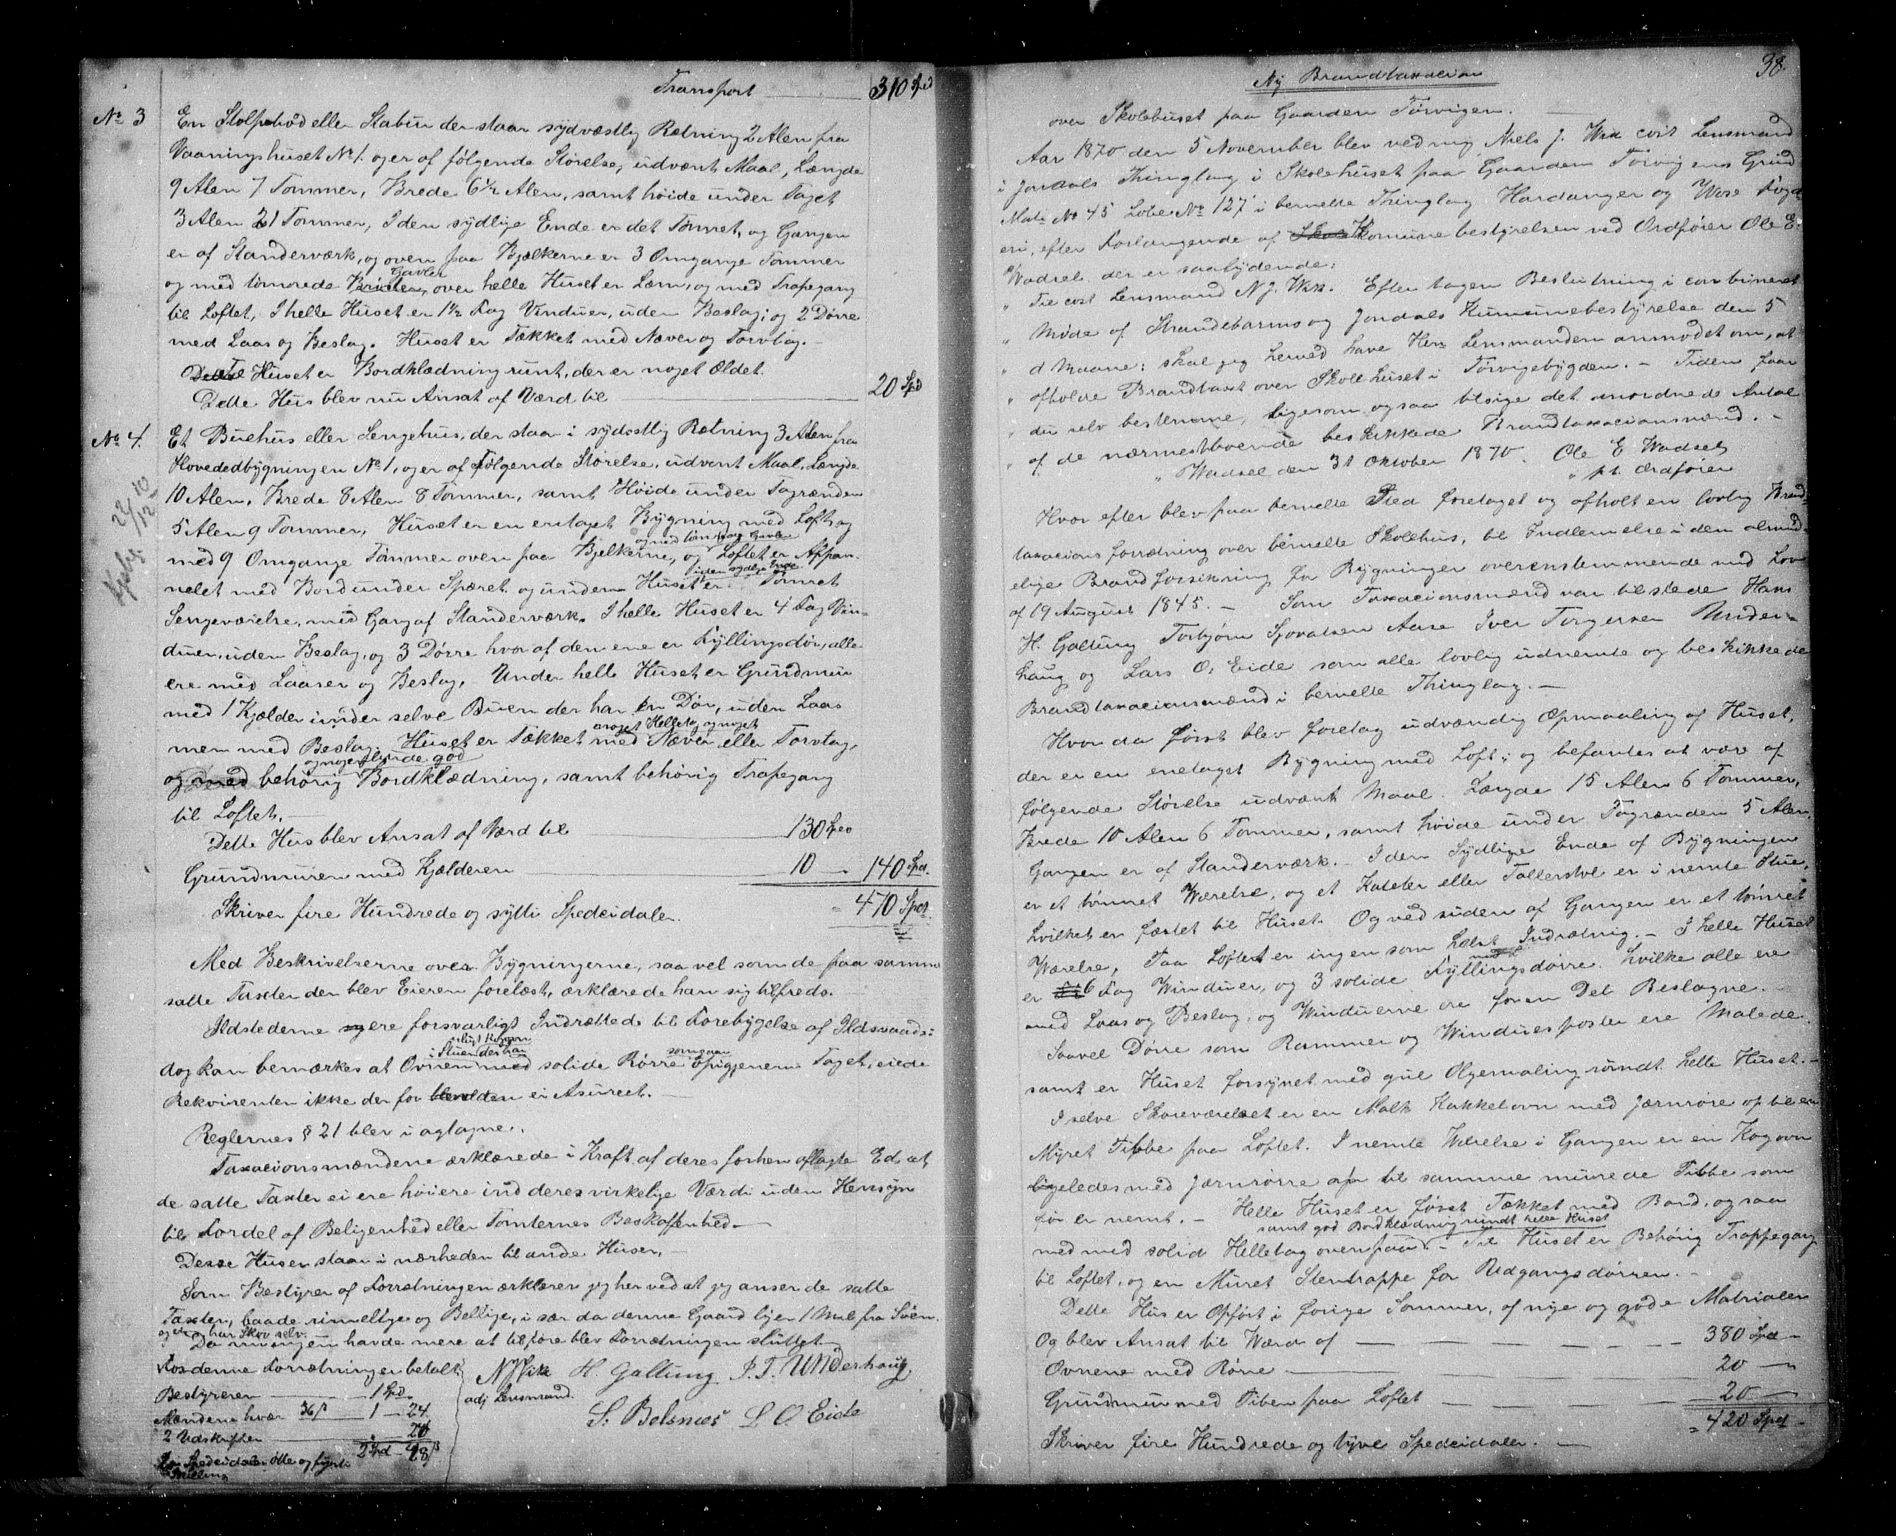 Transport 310 Spd
No 3 En Stolpebod eller Stabur der staar sydvæstlig Rætning 2 Alen fra
Vaaningshuset No 1. og er af følgende Størelse, udvænt Maal, Længde
9 Alen 7 Tommer, Brede 6½ Alen, samt høide under Taget
3 Alen 21 Tommer, I den sydlige Ende er det Tømret, og Gangen
er af Standerværk, og oven paa Bjelkerne er 3 Omgange Tømmer
og med tømrede Gavler, over helle Huset er Læm, og med Trapegang
til Loftet, I helle Huset er 1½ Fag Vinduer, uden Beslag; og 2 Dørre
med Laas og Beslag. Huset er Tækket med Næver og Torvtag.
Huset er Bordklædning runt, der er noget Ældet.
Dette Hus blev nu Ansat af Værd til 20 Spd
No 4. Et Buehus eller Sengehus, der staar i sydostlig Rætning 3 Alen fra
Hovedbygningen No 1, og er af Følgende Størelse, udvent Maal, Længde
10 Alen, Brede 8 Alen 8 Tommer, samt Høide under Tagrænden
5 Alen 9 Tommer, Huset er en etaget Bygning med Loft, og
med 9 Omgange Tømmer oven paa Bjelkerne, og Loftet er Afpan-
nelet med Bord under Spæret og underne Huset er i den sydlige Ende Tømret
Sengeværelse, med Gang af Standerværk. I helle Huset er 4 Fag Vin-
duer, uden Beslag, og 3 Dørre hvor af den ene er Fyllingsdør, alle
ere med Laaser og Beslag. Under helle Huset er Grundmur
med 1 Kjælder under selve Buen der har en Dør, uden Laas
men med Beslag. Huset er Tækket med Næver, eller Torvtag,
behørig Bordklædning, samt behørig Trapegang
til Loftet.
Dette Hus blev Ansat af Værd til 130 Spd
Grundmuren med Kjælderen 10 — 140 Spd.
Skriver fire Hundrede og sytti Spedeidaler 470 Spd
Med Beskrivelserne over Bygningerne, saa vel som de paa samme
satte Taxter der blev Eieren forelæst, erklærede han sig tilfreds.
Ildstederne ere forsvarligt Indrættede til Forebygelse af Ildsvaade:
dog kan bemærkes at Ovnen i Stuen der har solide Rørre som gaar op igjenem Taget, eiede
Rekvirenten ikke der for ei Asureet.
Reglernes § 21 blev i agtagne.
Taxacionsmændene erklærede i Kraft af deres forhen aflagte Ed, at
de satte Taxter ei ere høiere ind deres virkelige Værdi uden Hensyn
til Fordel af Beligenhed eller Tomternes Beskaffenhed.
Desse Huser staar i nærheden til andre Huser.
Som Bestyrer af Forrætningen erklærer jeg her ved at jeg anser de satte
Taxter, baade rimellige og Bellige, i sær da denne Gaard liger 1 Mul fra Søen.
og har Skov selv.
Da ingen havde mere at tilføre blev Forrætningen sluttet
For denne Forrætninger betalt
N J Wik H. Galtung I. T. Underhaug
adj Lensmand.
S. Belsnæs L O Eide
Bestyreren 1 Spd
Mændene hvær 36 ß 1 — 24
2 Udskrifter 
Skilling
Ny Brandtaxacion 38.
over Skolehuset paa Gaarden Tørvigen.
Aar 1870 den 5 November blev ved mig Niels J. Wik cost Lensmand
i Jondals Thinglag i Skolehuset paa Gaarden Tørvigens Grund
Matr No 45 Løbe No 127 i bemelte Thinglag Hardanger og Wose Fogd
eri, efter Forlangende af Komunebestyrelsen ved Ordfører Ole E.
Wadsel der er saalydende:
" Til cost Lensmand N J. Wik. Efter tagen Beslutning i combineret
" Møde af Strandebarms og Jondals Kumunebestyrelse den 5
" d Maane: skal jeg herved have Herr Lensmanden anmodet om, at
" afholde Brandtaxt over Skolehuset i Tørvigebygden. — Tiden faar
" du selv bestemme, ligesom ogsaa tilsige det anordnede Antal
" af de nærmestboende beskikkede Brandtaxacionsmænd. —
" Wadsel den 31 Oktober 1870. Ole E Wadsel
" pt. Ordfører
Hvor efter blev paa bemelte Sted foretaget og afholt en lovlig Brand-
taxacions forrætning over bemelte Skolehus, til Indlemelse i den almind-
elige Brandforsikring for Bygninger overenstemmende med Lov
af 19 August 1845. — Som Taxacionsmænd var tilstede Hans
H. Galtung Torbjørn Sjovatsen Aase Iver Torgersen Under-
haug og Lars O. Eide som alle lovlig udnemte og beskikkede
Brandtaxacionsmænd i bemelte Thinglag. —
Hvor da først blev foretag udvændig Opmaaling af Huset,
der er en enetaget Bygning med Loft; og befantes at være af
følgende Størelse udvænt Maal. Længde 15 Alen 6 Tommer,
Brede 10 Alen 6 Tommer, samt høide under Tagrænden 5 Alen,
Gangen er af Standerværk. — I den Sydlige Ende af Bygningen
er et tømret Værelse, og et Kateter eller Tallerstol er i nemte Stue,
hvilket er fæstet til Huset. Og ved siden af Gangen er et tømret
Værelse, Paa Loftet er ingen som helst Indrætnig. — I helle Huset
er 6 Fag Winduer, og 3 solide Fyllingsdørre. hvilke alle ere
med Laas og Beslag, og Winduerne ere foruden Det Beslagne.
Saavel Dørre som Rammer og Winduesposter ere Malede.
samt er Huset forsynet med gul Olgemaling rundt helle Huset. —
I selve Skoleværelset er en Malt Kakkelovn med Jærnrøre op til en
Muret Pibbe paa Loftet. I nemte Værelse i Gangen er en Kogovn
ligeledes med Jærnrørre op til samme murede Pibbe som
før er nemt. — Helle Huset er først Tækket med Bord, og saa
samt god Bordklædning rundt helle Huset
med med solid Helletag ovenpaa. — Til Huset er Behørig Trappegang
til Loftet, og en Muret Stentrappe for Redgangsdørren. —
Dette Hus er Opført i forige Sommer, af nye og gode Matrialer
Og blev Ansat til Wærd af 380 Spd
Ovnene med Rørre 20 —
Grundmur med Piben paa Loftet 20 —
= 420 Spd
Skriver fire Hundrede og tyve Spedeidaler. —